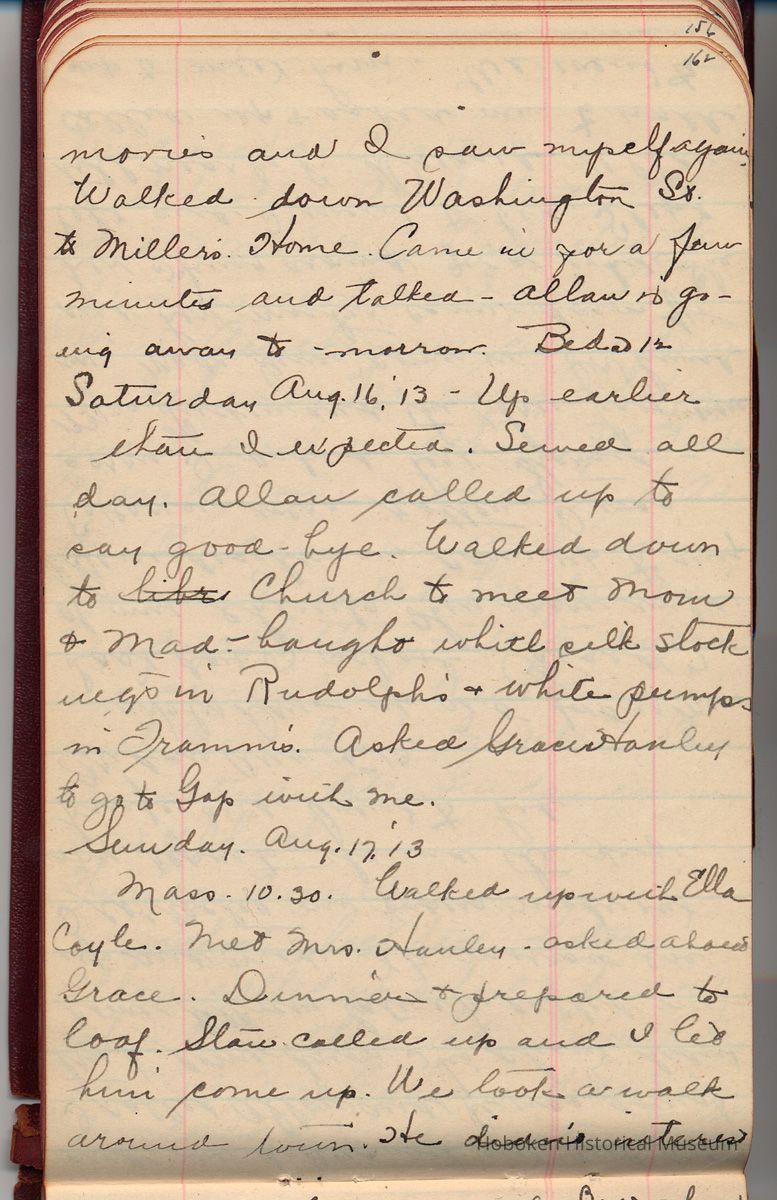 156
162
movies and I saw myself again,
Walked down Washington St.
to Miller's. Home. Came in for a few
minutes and talked - Allan is go-
ing away to-morrow. Bed 12
Saturday Aug. 16, '13 - Up earlier
than I expected. Sewed all
day. Allan called up to
say good-bye. Walked down
to libr Church to meet Mom
& Mad - bought white silk stock
ings in Rudolph's & white pumps
in Tramm's. Asked Grace Hanley
to go to Gap with me.
Sunday. Aug. 17, '13
Mass. 10.30. Walked up with Ella
Coyle. Met Mrs. Hanley - asked about
Grace. Dinner & prepared to
loaf. Stan called up and I let
him come up. We took a walk
around town. He didn't interest
Hoboken Historical Museum